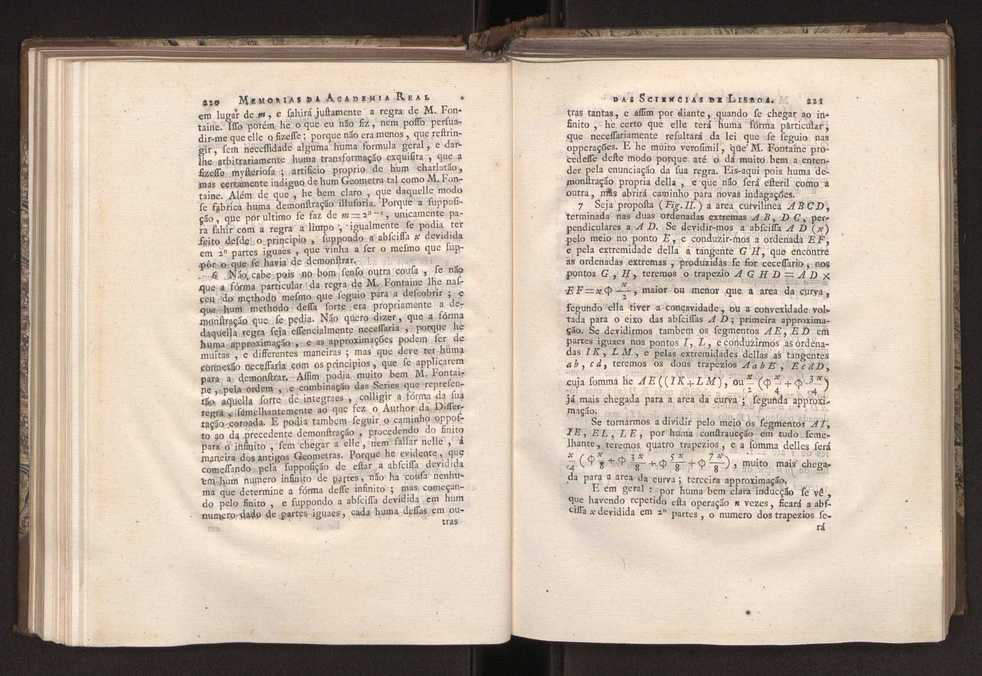 220 MEMORIAS DA ACADEMIA REAL
em lugar de m, e sahirá justamente a regra de M. Fon-
taine. Isso porém he o que eu não fiz, nem posso persua-
dir-me que elle o fizesse: porque não era menos, que restrin-
gir, sem necessidade alguma huma formula geral, e dar-
lhe arbitrariamente huma transformação exquisita, que a
fizesse mysteriosa; artificio proprio de hum charlatão,
mas certamente indigno de hum Geometra tal como M. Fon-
taine. Além de que, he bem claro, que daquelle modo
se fabrica huma demonstração illusoria. Porque a supposi-
ção, que por ultimo se faz de m=2ⁿ⁻¹, unicamente pa-
ra sahir com a regra a limpo, igualmente se podia ter
feito desde o principio, suppondo a abscissa x devidida
em 2ⁿ partes iguaes, que vinha a ser o mesmo que sup-
pôr o que se havia de demonstrar.
6 Não cabe pois no bom senso outra cousa, se não
que a fórma particular da regra de M. Fontaine lhe nas-
ceu do methodo mesmo que seguio para a descobrir; e
que hum methodo dessa sorte era propriamente a de-
monstração que se pedia. Não quero dizer, que a fórma
daquella regra seja essencialmente necessaria, porque he
huma approximação, e as approximações podem ser de
muitas, e differentes maneiras; mas que deve ter huma
connexão necessaria com os principios, que se applicarem
para a demonstrar. Assim podia muito bem M. Fontai-
ne, pela ordem, e combinação das Series que represen-
tão aquella sorte de integraes, colligir a fórma da sua
regra, semelhantemente ao que fez o Author da Disser-
tação coroada. E podia tambem seguir o caminho oppos-
to ao da precedente demonstração, procedendo do finito
para o infinito, sem chegar a elle, nem fallar nelle, á
maneira dos antigos Geometras. Porque he evidente, que
começando pela supposição de estar a abscissa devidida
em hum numero infinito de partes, não ha cousa nenhu-
ma que determine a fórma desse infinito; mas começan-
do pelo finito, e suppondo a abscissa devidida em hum
numero dado de partes iguaes, cada huma dessas em ou-
tras
DAS SCIENCIAS DE LISBOA. 221
tras tantas, e assim por diante, quando se chegar ao in-
finito, he certo que elle terá huma fórma particular,
que necessariamente resultará da lei que se seguio nas
opperações. E he muito verosimil, que M. Fontaine pro-
cedesse deste modo porque até o dá muito bem a enten-
der pela enunciação da sua regra. Eis-aqui pois huma de-
monstração propria della, e que não será esteril como a
outra, mas abrirá caminho para novas indagações.
7 Seja proposta (Fig. II.) a area curvilinea ABCD,
terminada nas duas ordenadas extremas AB, DC, per-
pendiculares a AD. Se devidir-mos a abscissa AD (x)
pelo meio no ponto E, e conduzir-mos a ordenada EF,
e pela extremidade della a tangente GH, que encontre
as ordenadas extremas, produzidas se for necessario, nos
pontos G, H, teremos o trapezio AGHD=AD×
EF=xΦ x/2, maior ou menor que a area da curva,
segundo ella tiver a concavidade, ou a convexidade vol-
tada para o eixo das abscissas AD; primeira approxima-
ção. Se devidirmos tambem os segmentos AE, ED em
partes iguaes nos pontos I, L, e conduzirmos as ordena-
das IK, LM, e pelas extremidades dellas as tangentes
ab, cd, teremos os dous trapezios AabE, EcdD,
cuja somma he AE((IK+LM), ou x/2 (Φ x/4 + Φ 3x/4)
já mais chegada para a area da curva; segunda approxi-
mação.
Se tornarmos a dividir pelo meio os segmentos AI,
IE, EL, LE, por huma construcção em tudo seme-
lhante, teremos quatro trapezios, e a somma delles será
x/4 (Φ x/8 + Φ 3x/8 + Φ 5x/8 + Φ 7x/8), muito mais chega-
da para a area da curva; terceira approximação.
E em geral: por huma bem clara inducção se vê,
que havendo repetido esta operação n vezes, ficará a abs-
cissa x devidida em 2ⁿ partes, o numero dos trapezios se-
rá